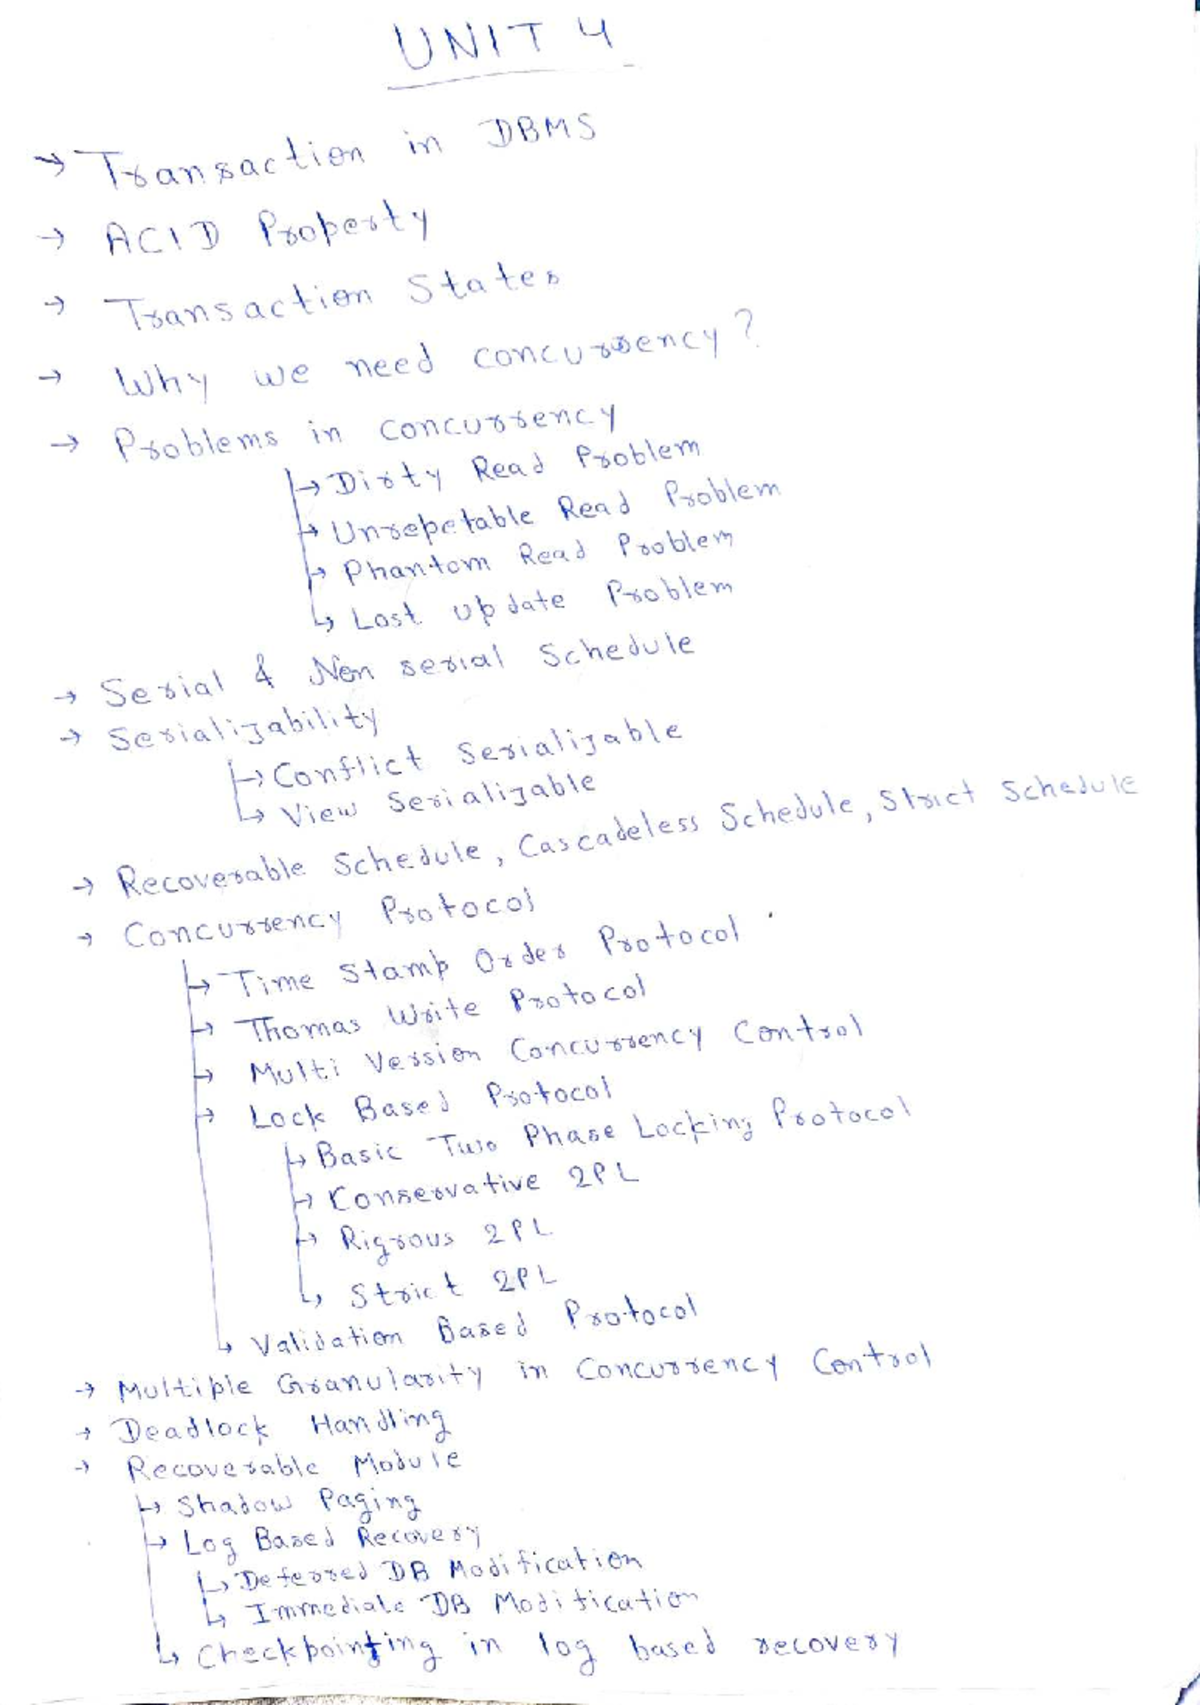 UNIT 4
→ Transaction in DBMS
→ ACID Property
→ Transaction States
→ Why we need concurrency?
→ Problems in concurrency
→ Dirty Read Problem
→ Unrepetable Read Problem
→ Phantom Read Problem
→ Lost update Problem
→ Serial & Non serial Schedule
→ Serializability
→ Conflict Serializable
→ View Serializable
→ Recoverable Schedule, Cascadeless Schedule, Strict Schedule
→ Concurrency Protocol
→ Time Stamp Order Protocol
→ Thomas Write Protocol
→ Multi Version Concurrency Control
→ Lock Based Protocol
→ Basic Two Phase Locking Protocol
→ Conservative 2PL
→ Rigrous 2PL
→ Strict 2PL
→ Validation Based Protocol
→ Multiple Granularity in Concurrency Control
→ Deadlock Handling
→ Recoverable Module
→ Shadow Paging
→ Log Based Recovery
→ Deferred DB Modification
→ Immediate DB Modification
→ Checkpointing in log based recovery